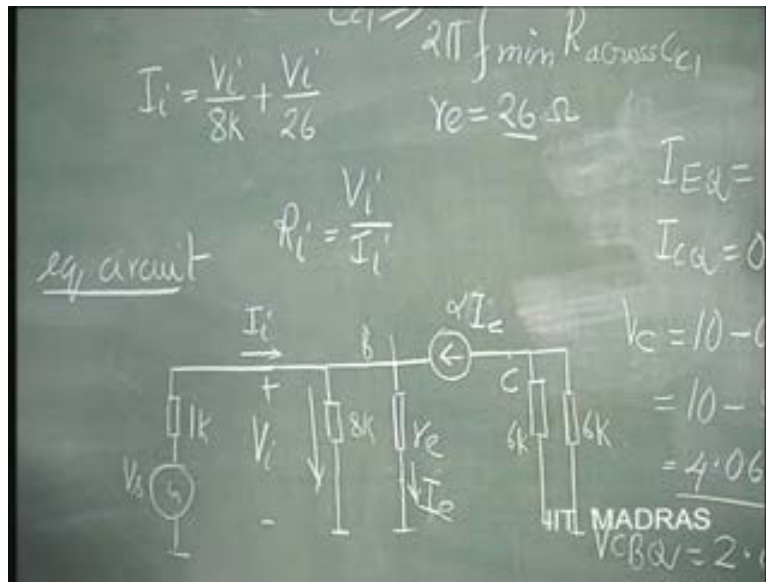 2π f min R across Cc1
Ii = Vi/8k + Vi/26
re = 26 Ω
Ri = Vi/Ii
IEQ =
ICQ = 0
eq circuit
VC = 10 - 0
= 10 -
= 4.06
VCBQ = 2.
Ii
B
αIe
C
+
Vi
-
1k
Vs
8k
re
Ie
6k
6k
IIT MADRAS